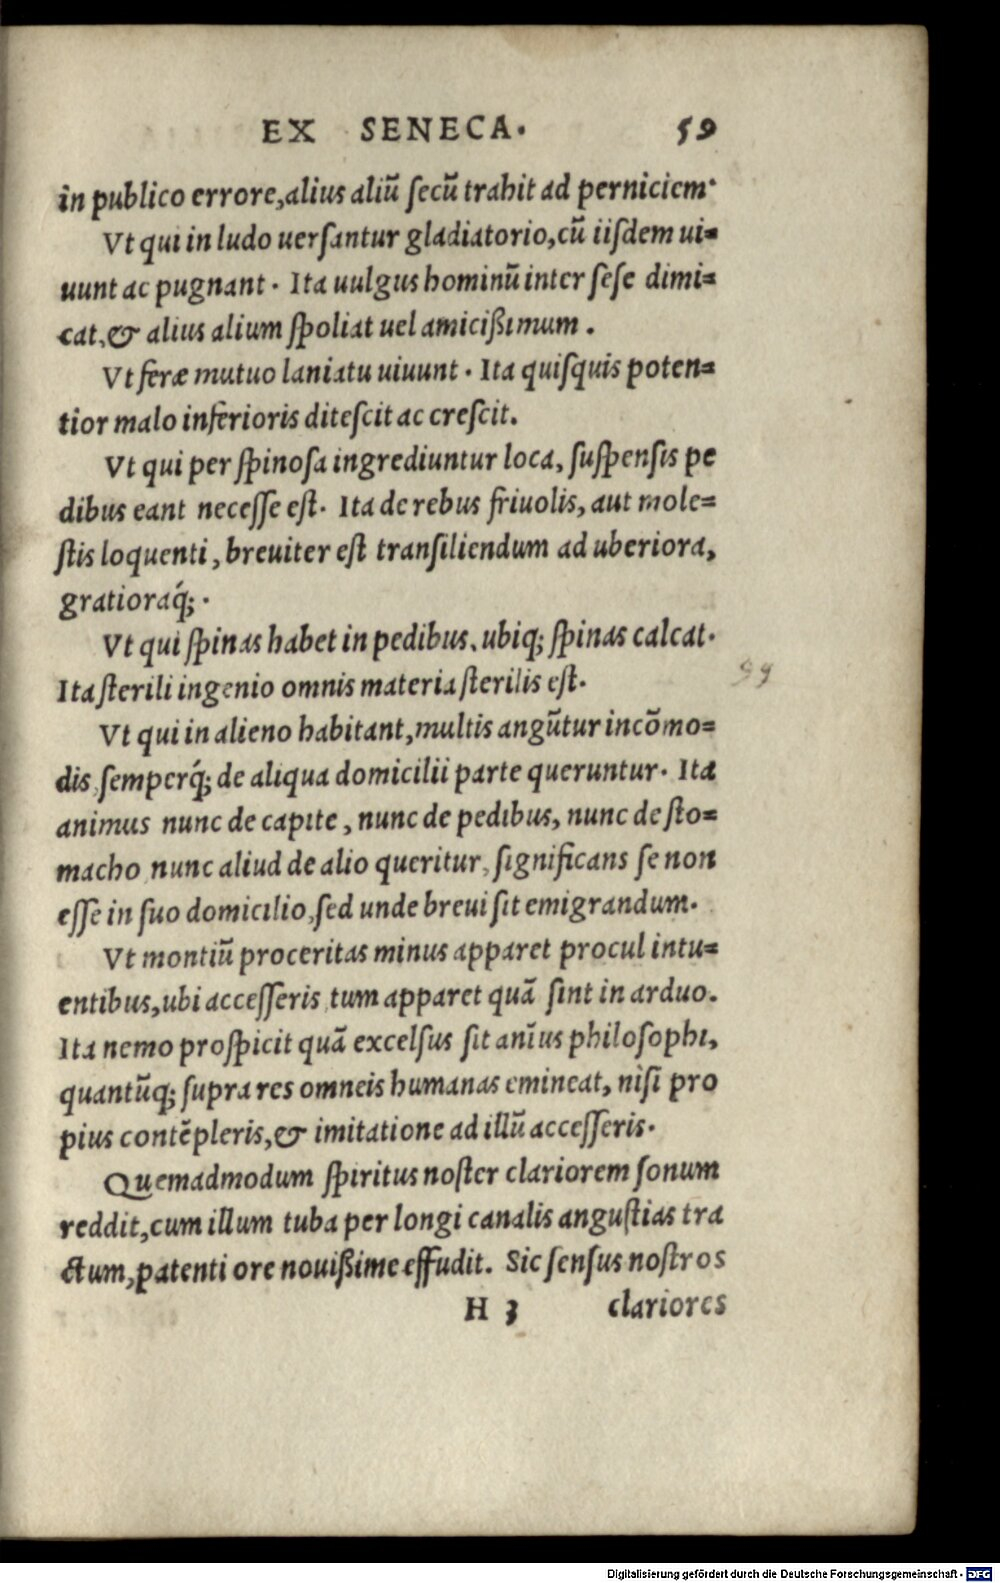 EX SENECA. 59
in publico errore,alius aliū ſecū trahit ad perniciem·
Vt qui in ludo uerſantur gladiatorio,cū iiſdem ui=
uunt ac pugnant · Ita uulgus hominū inter ſeſe dimi=
cat,& alius alium ſpoliat uel amicißimum .
Vt feræ mutuo laniatu uiuunt · Ita quiſquis poten=
tior malo inferioris diteſcit ac creſcit.
Vt qui per ſpinoſa ingrediuntur loca, ſuſpenſis pe
dibus eant neceſſe eſt· Ita de rebus friuolis, aut mole=
ſtis loquenti, breuiter eſt tranſiliendum ad uberiora,
gratioraq́; ·
Vt qui ſpinas habet in pedibus, ubiq; ſpinas calcat·
Ita ſterili ingenio omnis materia ſterilis eſt·
99
Vt qui in alieno habitant,multis angūtur incōmo=
dis,ſemperq́; de aliqua domicilii parte queruntur· Ita
animus nunc de capite, nunc de pedibus, nunc de ſto=
macho nunc aliud de alio queritur, ſignificans ſe non
eſſe in ſuo domicilio,ſed unde breui ſit emigrandum·
Vt montiū proceritas minus apparet procul intu=
entibus,ubi acceſſeris tum apparet quā ſint in arduo.
Ita nemo proſpicit quā excelſus ſit anīus philoſophi,
quantūq; ſupra res omneis humanas emineat, niſi pro
pius contēpleris,& imitatione ad illū acceſſeris·
Quemadmodum ſpiritus noſter clariorem ſonum
reddit,cum illum tuba per longi canalis anguſtias tra
ctum,patenti ore nouißime effudit. Sic ſenſus noſtros
H 3 clariores
Digitalisierung gefördert durch die Deutsche Forschungsgemeinschaft · DFG